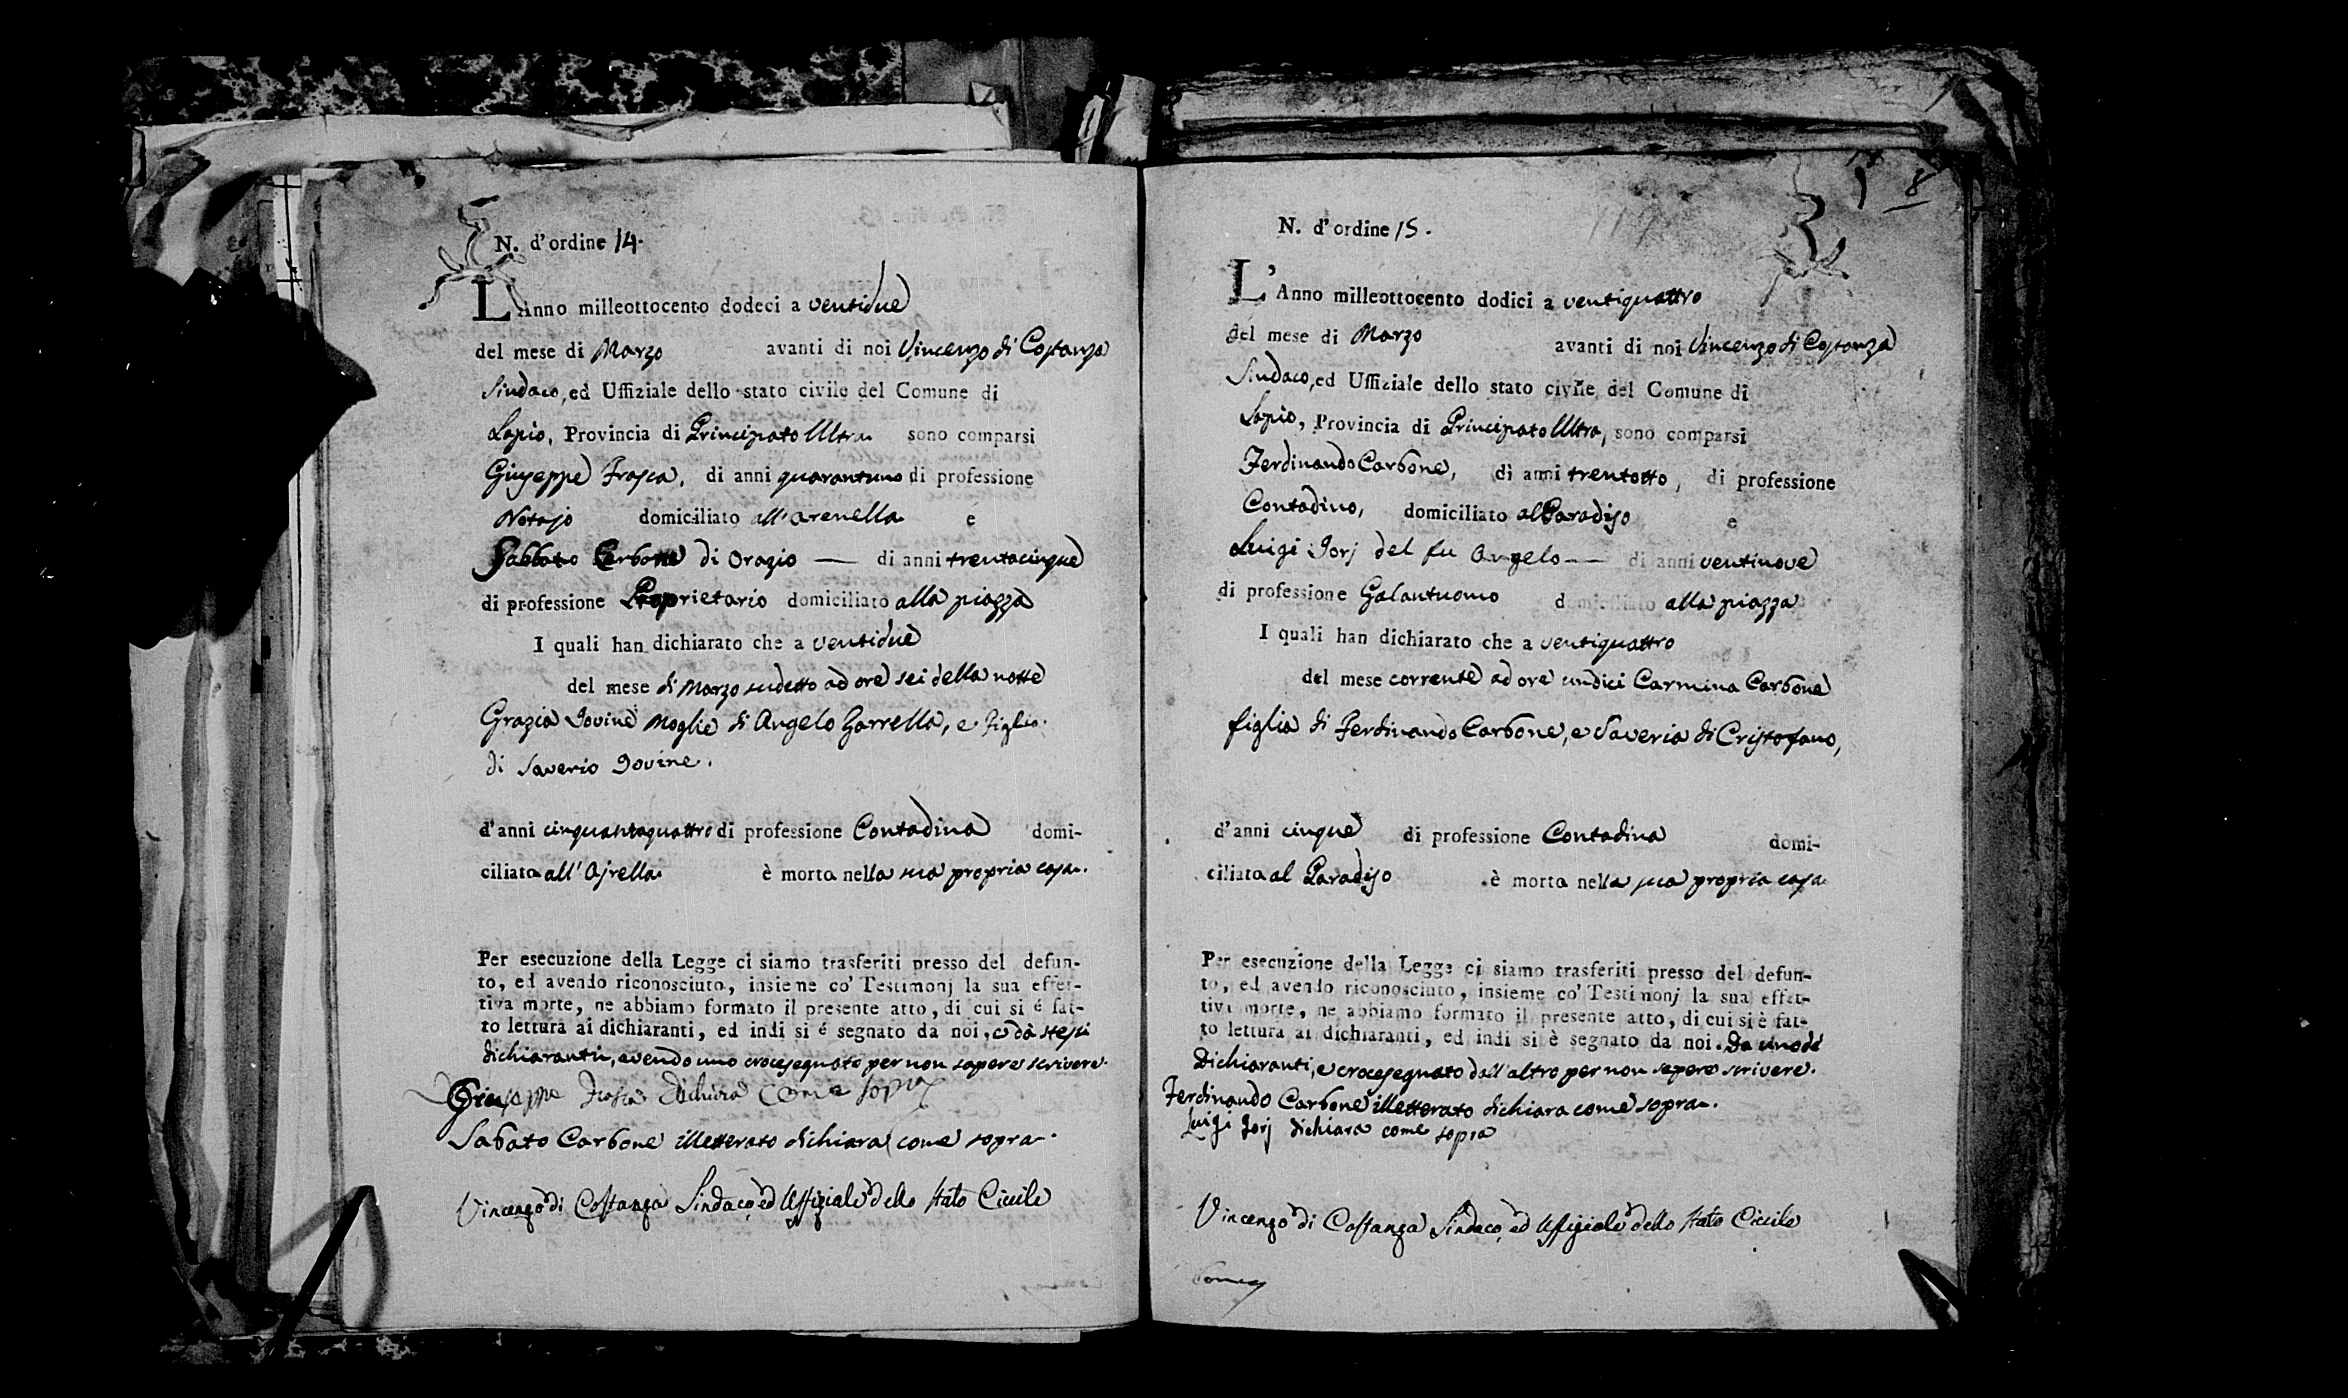 N. d'ordine 14.
L'Anno milleottocento dodeci a ventidue
del mese di Marzo avanti di noi Vincenzo di Costanza
Sindaco, ed Uffiziale dello stato civile del Comune di
Lapio, Provincia di Principato Ultra sono comparsi
Giuseppe Frasca, di anni quarantuno di professione
Notajo domiciliato all'arenella e
Sabbato Carbone di Orazio — di anni trentacinque
di professione Proprietario domiciliato alla piazza
I quali han dichiarato che a ventidue
del mese di Marzo sudetto ad ore sei della notte
Grazia Iovine Moglie di Angelo Garrella, e figlia
di Saverio Iovine.
d'anni cinquantaquattro di professione Contadina domi-
ciliata all'Ajrella è morta nella sua propria casa.
Per esecuzione della Legge ci siamo trasferiti presso del defun-
to, ed avendo riconosciuto, insieme co' Testimonj la sua effet-
tiva morte, ne abbiamo formato il presente atto, di cui si é fat-
to lettura ai dichiaranti, ed indi si é segnato da noi, e da stessi
dichiaranti, avendo uno crocesegnato per non sapere scrivere.
Giuseppe Frasca dichiara come sopra
Sabato Carbone illetterato dichiara come sopra.
Vincenzo di Costanza Sindaco, ed Uffiziale dello stato Civile
N. d'ordine 15.
L'Anno milleottocento dodici a ventiquattro
del mese di Marzo avanti di noi Vincenzo di Costanza
Sindaco, ed Uffiziale dello stato civile del Comune di
Lapio, Provincia di Principato Ultra, sono comparsi
Ferdinando Carbone, di anni trentotto, di professione
Contadino, domiciliato al Paradiso e
Luigi Iorj del fu Angelo — di anni ventinove
di professione Galantuomo domiciliato alla piazza
I quali han dichiarato che a ventiquattro
del mese corrente ad ore undici Carmina Carbone
figlia di Ferdinando Carbone, e Saveria di Cristofano,
d'anni cinque di professione Contadina domi-
ciliata al Paradiso è morta nella sua propria casa
Per esecuzione della Legge ci siamo trasferiti presso del defun-
to, ed avendo riconosciuto, insieme co' Testimonj la sua effet-
tiva morte, ne abbiamo formato il presente atto, di cui si è fat-
to lettura ai dichiaranti, ed indi si è segnato da noi. Da uno de'
Dichiaranti, e crocesegnato dall'altro per non sapere scrivere.
Ferdinando Carbone illetterato dichiara come sopra.
Luigi Iorj dichiara come sopra
Vincenzo di Costanza Sindaco, ed Uffiziale dello stato Civile